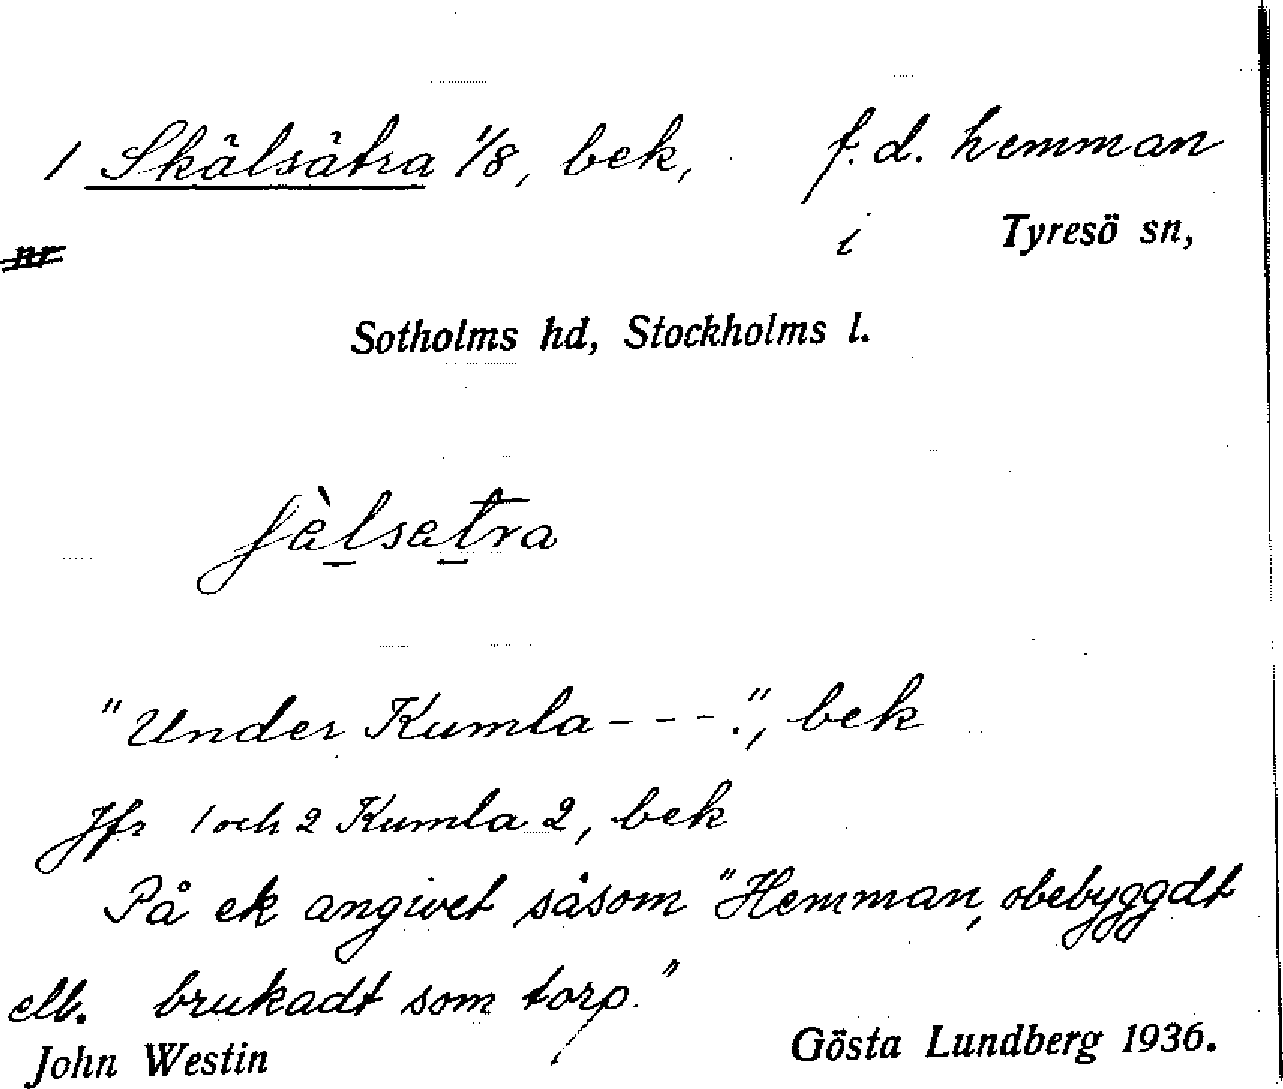 1 Skälsätra 1/8, bek, f.d. hemman
nr i Tyresö sn,
Sotholms hd, Stockholms l.
"Under Kumla - - - .", bek
Jfr 1 och 2 Kumla 2, bek
På ek angivet såsom "Hemman, obebyggdt
ell. brukadt som torp."
John Westin Gösta Lundberg 1936.